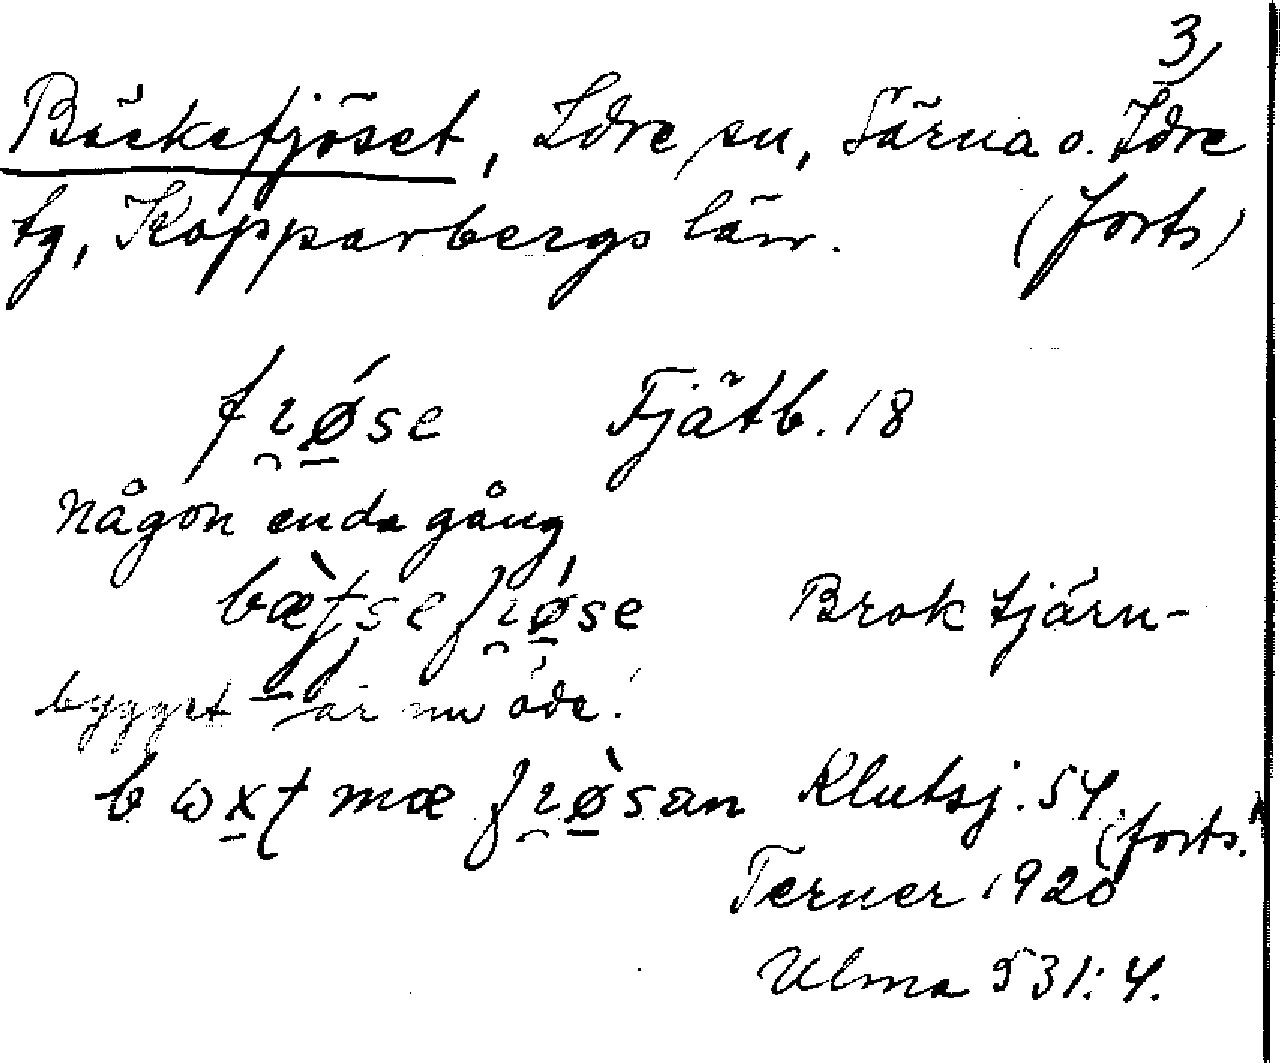 3,
Bäckefjöset, Idre sn, Särna o. Idre
tg, Kopparbergs län. (forts)
Fjätb. 18
någon enda gång
Broktjärn-
bygget – är nu öde.
Klutsj. 54.
(forts.
Terner 1920
Ulma 531:4.